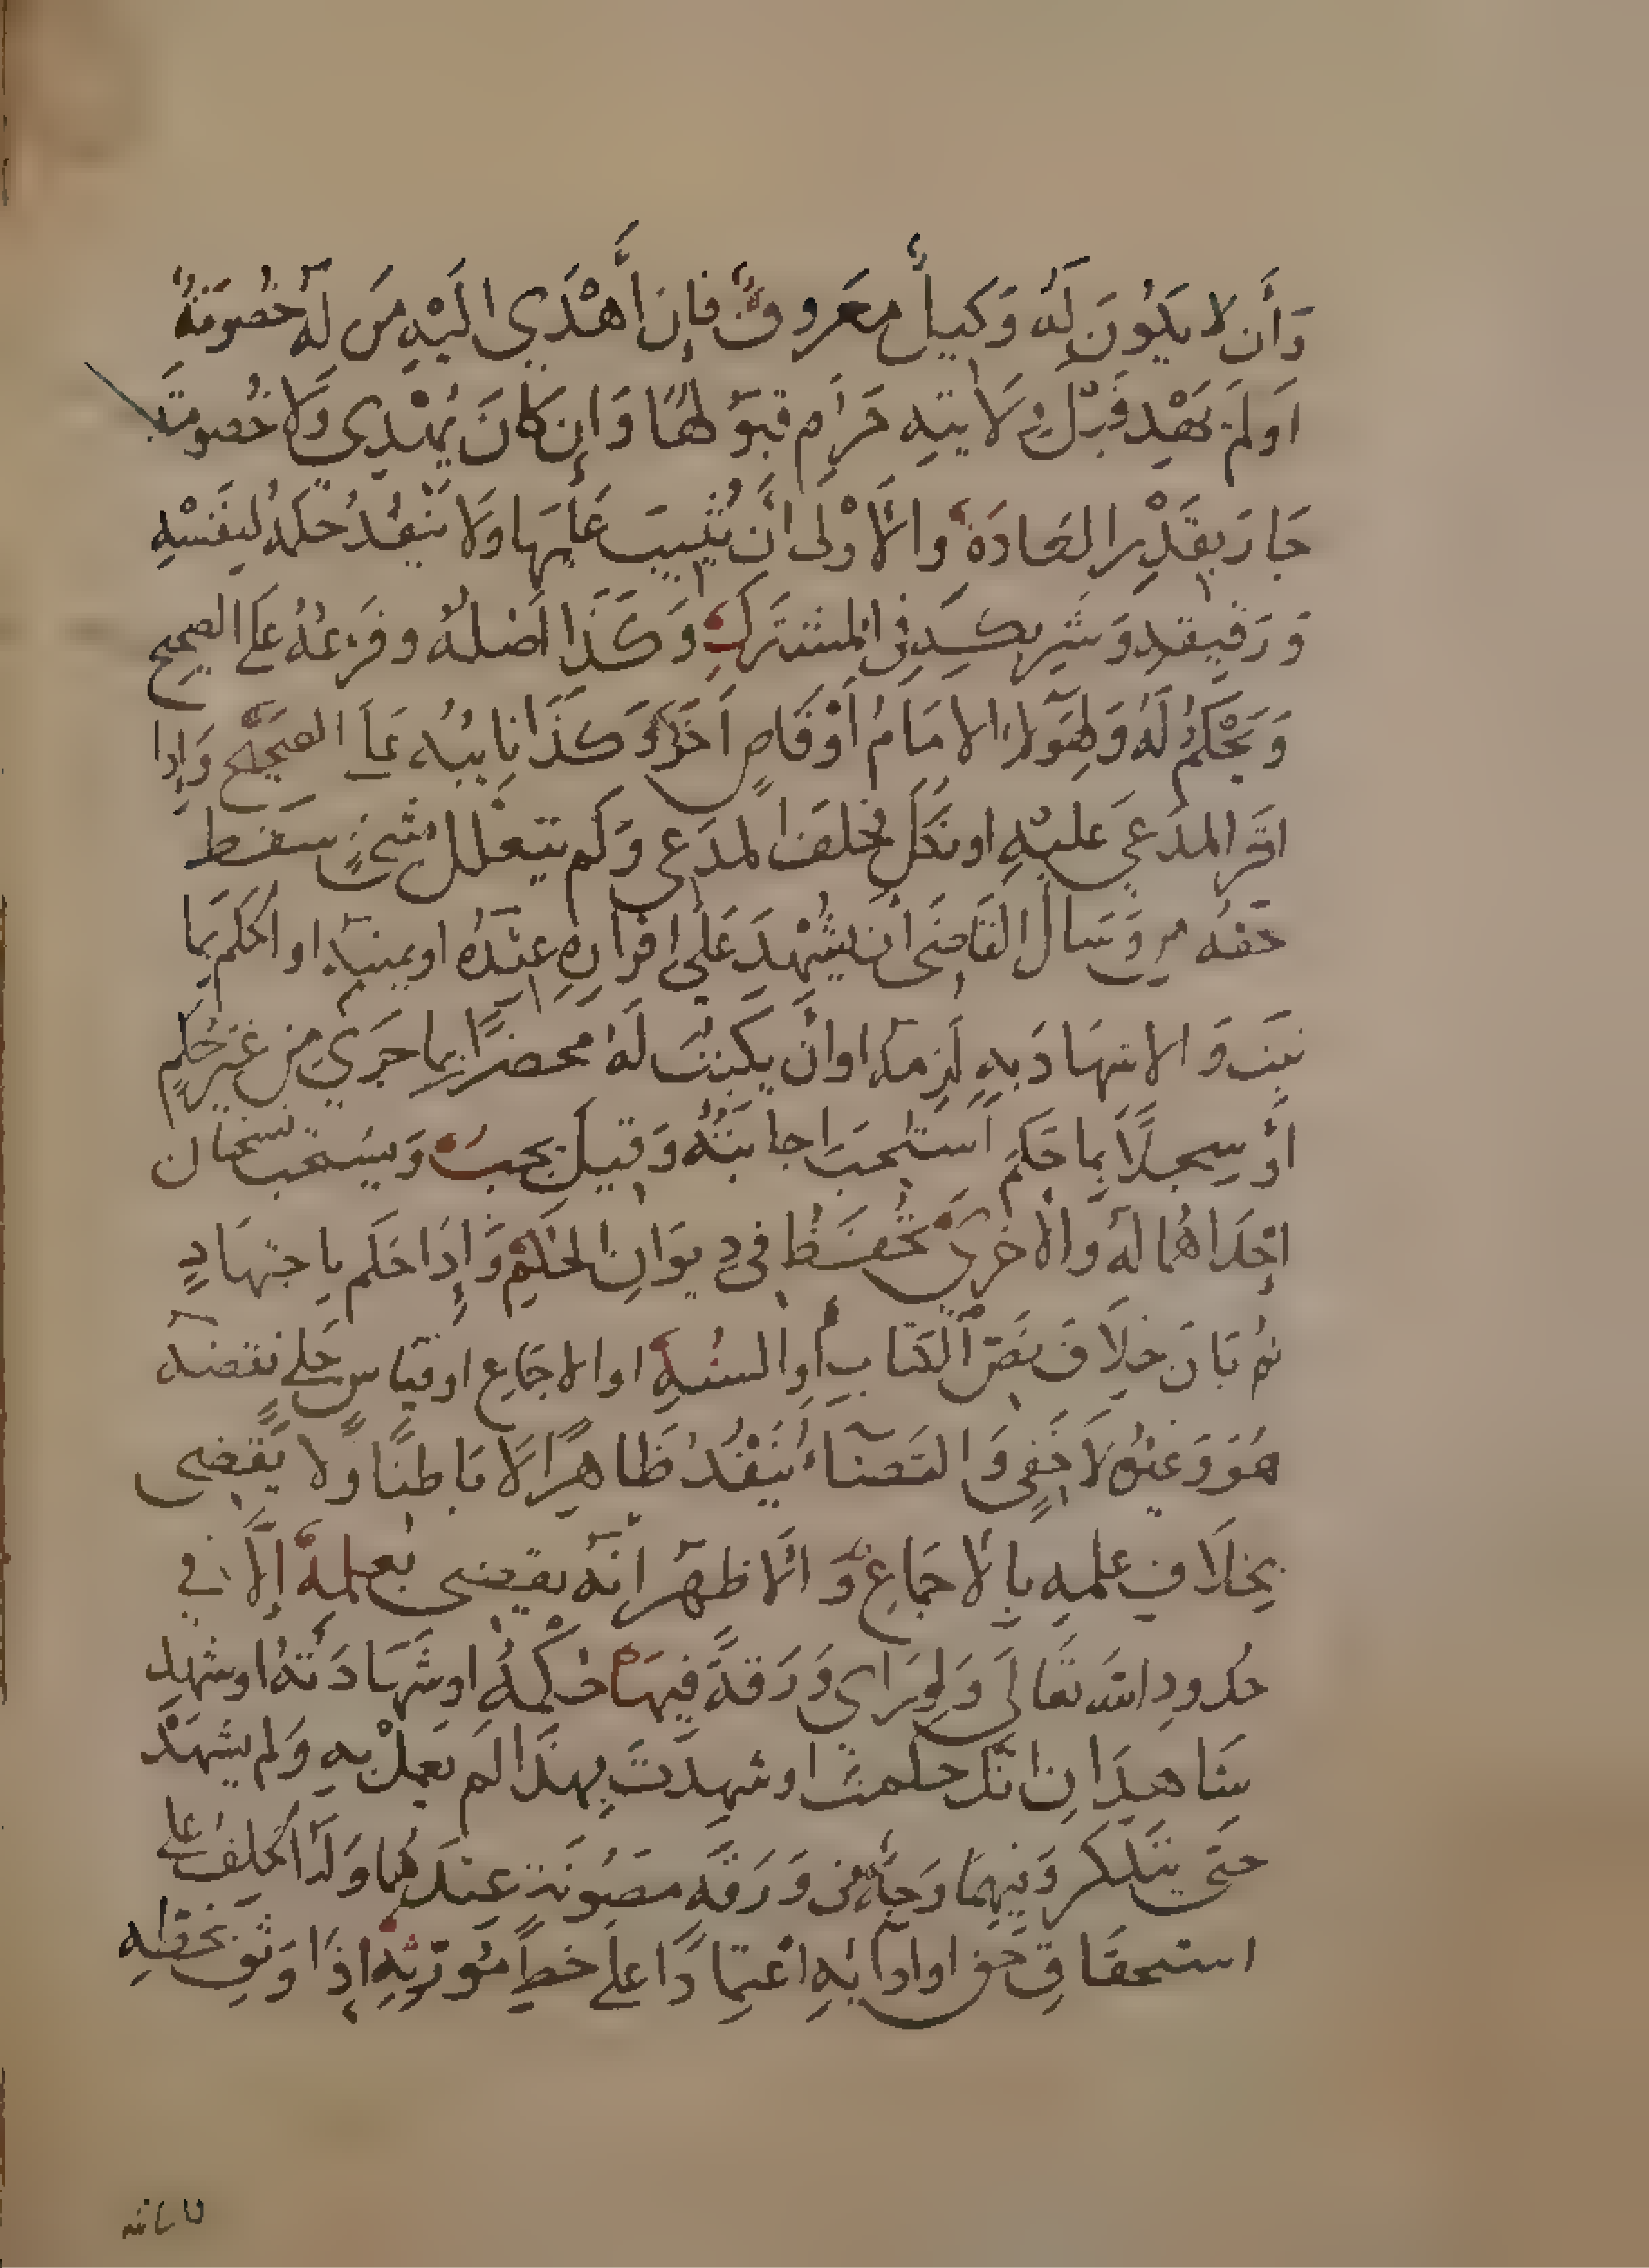 وَأَن لا يَكُونَ لَهُ وَكيلٌ معَروفٌ فإن أَهْدَي اليْهِ مَن لهُ خُصومَةٌ
اَو لَم يَهْدِ قَبْلَ وِلَايتِه حَرُم قبوَلهَا وَاِن كانَ يُهْدِى وَلَا خُصومَة
جَازَ بقَدْرِ العَادَةِ والأَوْلى انَّ يُثيبَ عَليهَا ولَا ينْفُذُ حُكمهُ لنِفَسْهِ
وَرَقيقهِ وَشَرِيكهِ فى المشتَركِ وَكَذَا اَصْلهُ وفَرْعهُ عَلَى الصحيح
وَيَحْكمُ لَهُ وَلِهَؤلاءِ الامَامُ اَوْ قَاضٍ اَخَرُ وَكذَا نايبُه عَلَى الصحيح وَاِذا
اقرَّ المدَعي عليْهِ او نَكَل فحَلفَ المدَعي وَ لم يتعلل بشيءٍ سقط
حَقهُ وَسَال القَاضَى أن يُشْهِدَ عَلى اِقرارِهِ عِنْدَهُ او يمينهِ او الحكم بِما
ثبَت وَالاشهَادَ بِهِ لَزِمهُ اوانْ يكتبَ لَهُ محضرًا بِما جَرَي مِن غيَرِ حُكمٍ
أوْ سِجلًّا بِما حَكمَ اسَتحبَ اجابتهُ وَقيلَ يجبُ وَيسُتحب نسختان
اِحْدَاهُما لهُ وَالاُخرىَ تُحفَظُ فى دِيوَانِ الحكمِ وَإِذَا حَكم باِجتهَادٍ
ثم بَانَ خِلَافَ نَصّ الكتَابِ أوالسنُةِ اوالاجَماعِ اوقياسٍ جَلىٍ نقضَه
هُوَ وَغيْرُه لَا خَفِي وَالقَضَآءُ يَنفُذُ ظَاهِرًا لَا بَاطنًا وَلا يَقضى
بِخلَافِ علمهِ بِالاجَماعِ وَالَاظهَرُ انَّهُ يقضى بعلمهِ إلَّا في
حدُودِ اللَّه تعَالَى وَلورَاي وَرَقةً فيهَا حكْمهُ اوشَهَادَتهُ اوشهِد
شَاهِدَانِ انَّكَ حكمتَ اوشهِدْتَ بِهذَا لَم يعملْ بِهِ وَلم يشهَدْ
حتَى يتَذكر وَفيهِمَا وَجهٌ فى وَرَقةٍ مصَوُنَةٍ عندَهُما وَلَهُ الحَلفُ عَلى
استحقَاقِ حَقٍ اوادآئِهِ اعْتمِادًا على خطِ مُوَرِّثِهِ اِذَا وَثق بخطِهِ